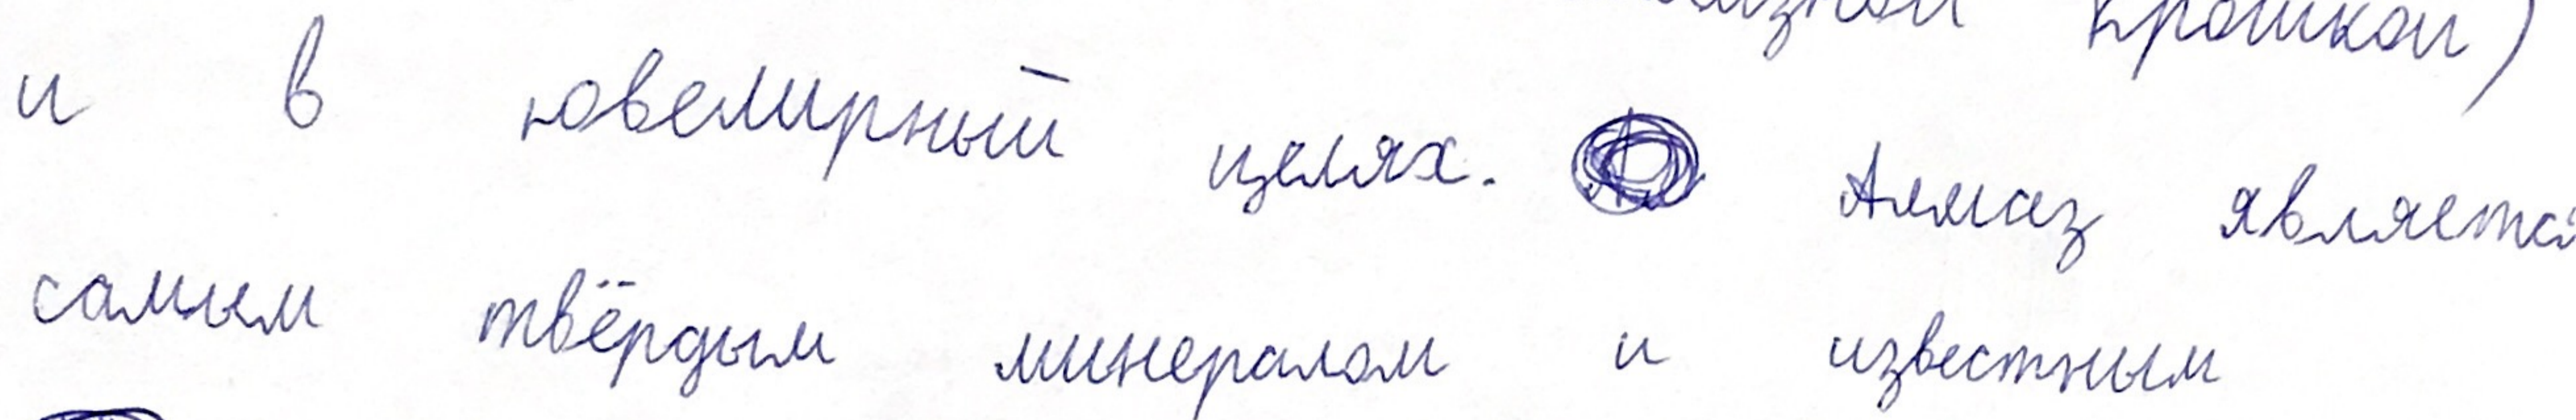 крошкой)
и в ювелирный целях. Алмаз является
самым твёрдым минералом и известным